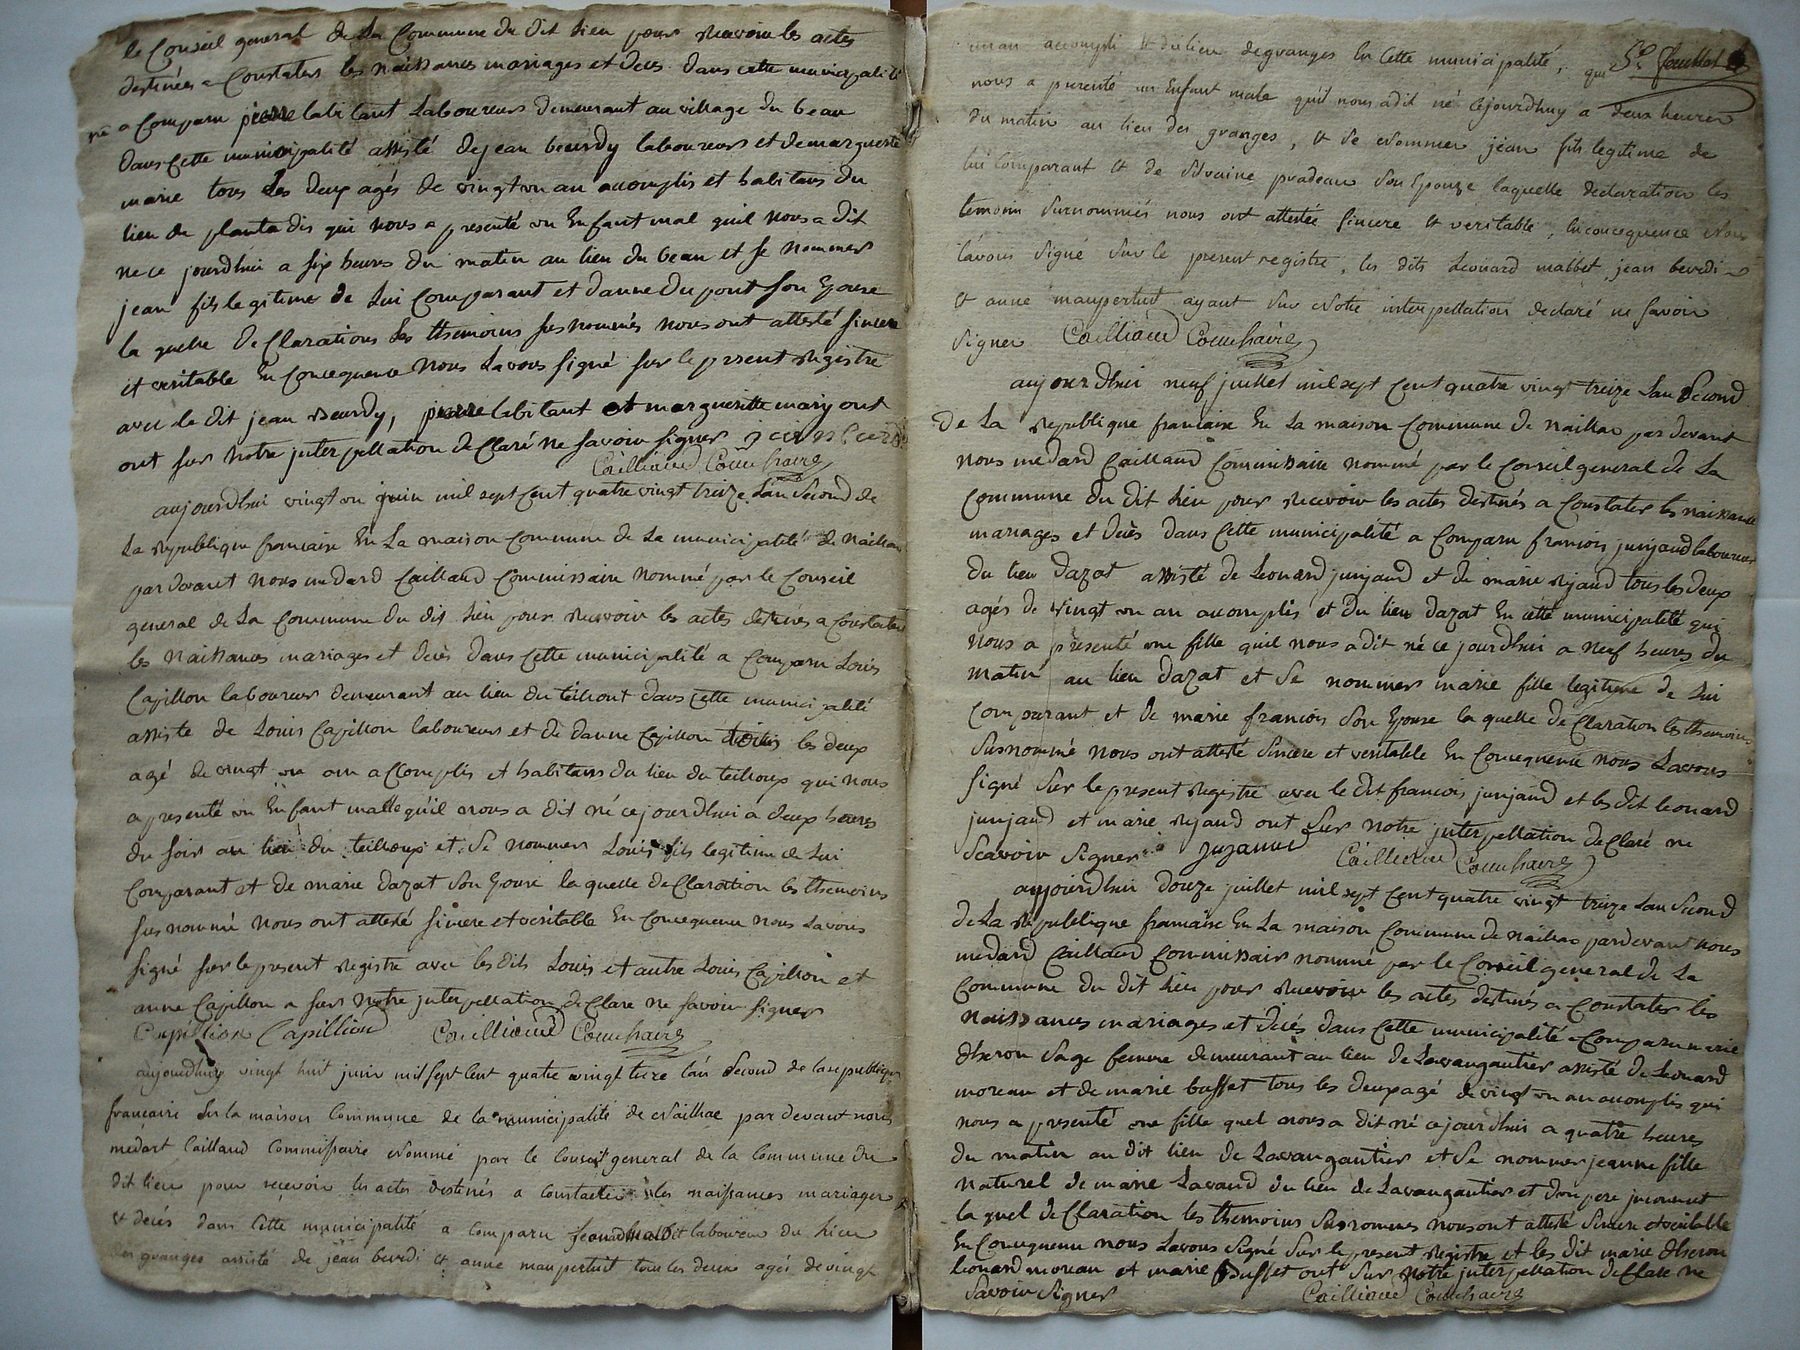 le Conseil general de La Commune du dit Lieu pour recevoir les actes
destinées a Constater les naissances mariages et deces dans cette municipalité
a Comparu pierre labitant Laboureur demeurant au village du beau
dans cette municipalité assisté de jean beurdy laboureur et de marguerite
marie tous Les deux agés de vingt un an acomplis et habitans du
lieu de planta dis qui nous a presenté un Enfant mal quil nous a dit
ne ce jourdhui a six heures du matin au lieu du beau et se nommer
jean fils legitime de Lui Comparant et danne dupont son Epouse
la quelle de Clarations Les themoins susnommés nous ont attesté sincere
et veritable En Concequence nous Lavons signé sur le present registre
avec le dit jean beurdy, pierre labitant et margueritte mary ont
ont sur notre interpellation de Claré ne savoir signer jean beurdi
Cailliaud Commissaire
aujourdhui vingt un juin mil sept Cent quatre vingt treize Lan Second de
La republique francaise En La maison Commune de La municipalité de naillac
par devant nous medard Caillaud Commissaire nommé par le Conseil
general de La Commune du dit Lieu pour recevoir les actes destinés a Constater
les naissances mariages et deces dans Cette municipalité a Comparu Louis
Capillon laboureur demeurant au lieu du teilhout dans Cette municipalité
assiste de Louis Capillon laboureur et de danne Capillon les deux
agé de vingt un an a Complis et habitans du lieu du teilhoup qui nous
a presenté un Enfant malle qu'il nous a dit né ce jourdhui a deux heures
du soir au lieu du teilhoup et Se nommer Louis fils legitime de Lui
Comparant et de marie dazat Son Epouse la quelle de Claration les themoins
sus nommé nous ont attesté sincere et veritable En Concequence nous Lavons
signé sur le present registre avec les dits Louis et autre Louis Capillon et
anne Capillon a sur notre interpellation de Clare ne savoir signer
Capillion Capilliou Cailliaud Commissaire
aujourdhuy vingt huit juin mil sept Cent quatre vingt treze l'an second de la republique
francaise En la maison Commune de la municipalité de Naillac par devant nous
medart Caillaud Commissaire Nommé par le Conseil general de la Commune du
dit lieu pour recevoir les actes destinés a Constater les naissances mariages
et décés dans Cette municipalité a Comparu Leonard Malbet laboureur du lieu
des granges assisté de jean bevedi et anne maupertuit tous les deux agés de vingt
5e feuillet
un an accompli et du lieu de granges En Cette municipalité, qui
nous a presenté un Enfant male qu'il nous a dit né Cejourdhuy a deux heures
du matin au lieu des granges, et se Nommer jean fils legitime de
lui Comparant et de Silvaine pradeau Son Epouze laquelle declaration les
temoins Surnommés nous ont attestée sincere et veritable, En Concequence Nous
l'avons Signé sur le present registre, les dits Leonard malbet, jean bevedi
et anne maupertuit ayant sur Notre interpellation declaré ne savoir
Signer Cailliaud Commissaire
aujourdhui neuf juillet mil sept Cent quatre vingt treize Lan Second
de La republique francaise En La maison Commune de naillac par devant
nous medard Caillaud Commissaire nommé par le Conseil general de La
Commune du dit lieu pour recevoir les actes destinés a Constater les naissance
mariages et deces dans Cette municipalité a Comparu francois junjaud laboureur
du lieu dazat assisté de Leonard junjaud et de marie rejaud tous les deux
agés de vingt un an acomplis et du lieu dazat En cette municipalité qui
nous a presenté une fille quil nous a dit né ce jourdhui a neuf heures du
matin au lieu dazat et Se nommer marie fille legitime de Lui
Comparant et de marie francois Son Epouse la quelle de Claration les themoins
Susnommé nous ont attesté Sincere et veritable En Concequence nous Lavons
signé sur le present registre avec le dit francois junjaud et les dit leonard
junjaud et marie rejaud ont sur notre interpellation de Claré ne
Scavoir Signer Cailliaud Commissaire
aujourdhui douze juillet mil sept Cent quatre vingt treize Lan Second
de La republique francaise En La maison Commune de naillac par devant nous
medard Caillaud Commissaire nommé par le Conseil general de La
Commune du dit Lieu pour recevoir les actes destinés a Constater les
naissances mariages et deces dans Cette municipalité a Comparu marie
dheron Sage femme demeurant au lieu de Lavaugautier assisté de Leonard
moreau et de marie busset tous les deux agé de vingt un an acomplis qui
nous a presenté une fille quel nous a dit né ce jourdhui a quatre heures
du matin au dit lieu de Lavaugautier et Se nommer jeanne fille
naturel de marie Lavaud du lieu de Lavaugautier et dun pere inconnut
la quel de Claration les themoins Susnommes nous ont attesté Sincere et veritable
En Concequence nous Lavons Signé Sur le present registre et les dit marie dheron
leonard moreau et marie Busset ont Sur notre interpellation de Clare ne
Savoir Signer Cailliaud Commissaire